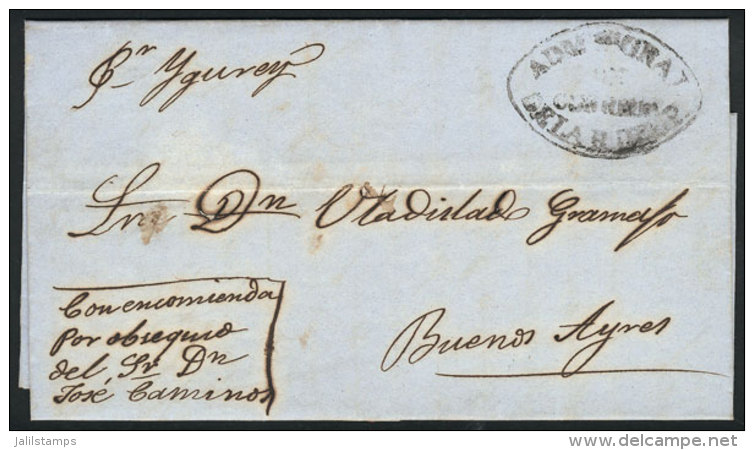 Pr Ygurey
ADMON GRAL
DE
CORREOS
DE LA R. DEL P.
Sr. Dn Uladislado Gramajo
Con encomienda
Por obsequio
del Sr Dn
José Caminos
Buenos Ayres
jalilstamps
delcampe.net